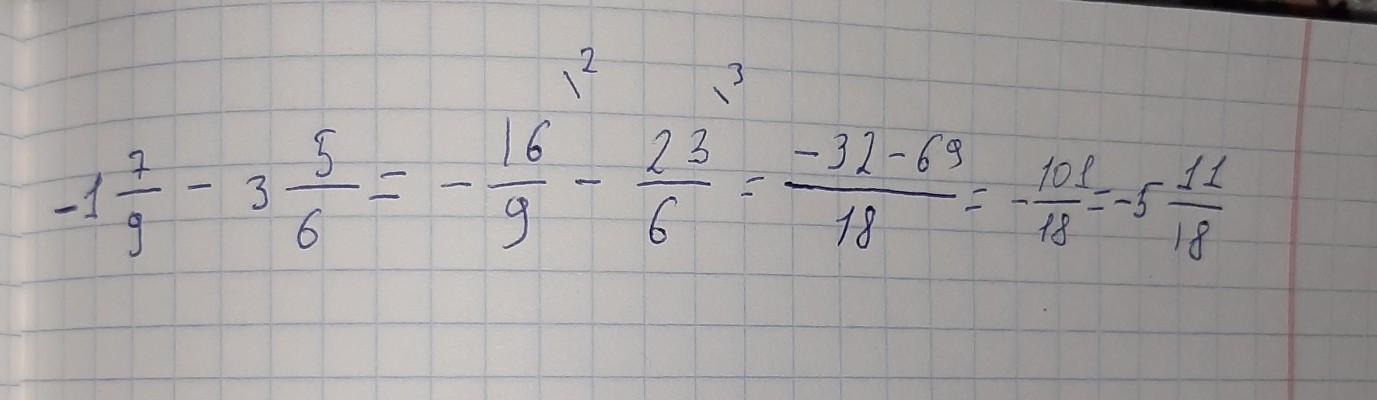 -1 7/9 - 3 5/6 = - 16/9 \2 - 23/6 \3 = -32-69/18 = - 101/18 = -5 11/18